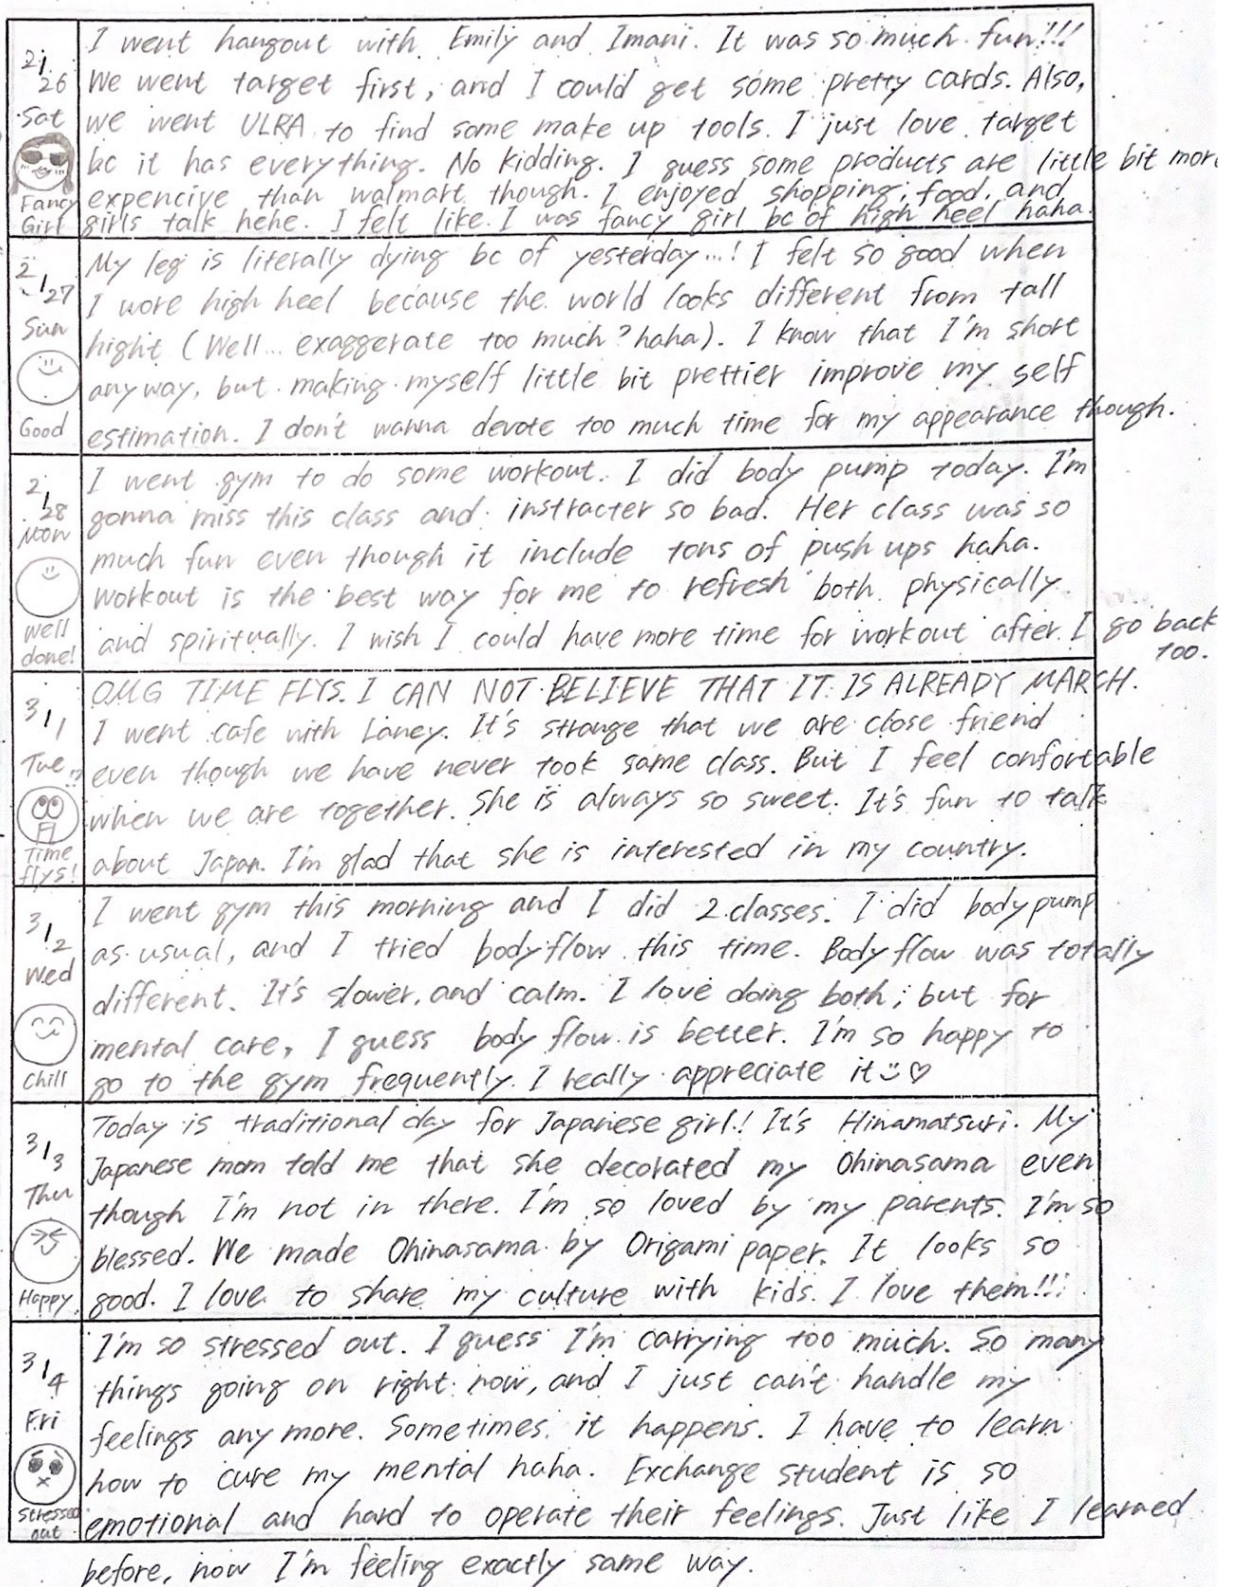 2/26
Sat
Fancy
Girl
I went hangout with Emily and Imani. It was so much fun!!!
We went target first, and I could get some pretty cards. Also,
we went ULRA to find some make up tools. I just love target
bc it has everything. No kidding. I guess some products are little bit more
expencive than walmart though. I enjoyed shopping, food, and
girls talk hehe. I felt like I was fancy girl bc of high heel haha.
2/27
Sun
Good
My leg is literally dying bc of yesterday...! I felt so good when
I wore high heel because the world looks different from tall
hight (Well... exaggerate too much? haha). I know that I'm short
anyway, but making myself little bit prettier improve my self
estimation. I don't wanna devote too much time for my appearance though.
2/28
Mon
well
done!
I went gym to do some workout. I did body pump today. I'm
gonna miss this class and instracter so bad. Her class was so
much fun even though it include tons of push ups haha.
Workout is the best way for me to refresh both physically
and spiritually. I wish I could have more time for workout after I go back
too.
3/1
Tue
Time
flys!
OMG TIME FLYS. I CAN NOT BELIEVE THAT IT IS ALREADY MARCH.
I went cafe with Laney. It's strange that we are close friend
even though we have never took same class. But I feel confortable
when we are together. She is always so sweet. It's fun to talk
about Japan. I'm glad that she is interested in my country.
3/2
Wed
Chill
I went gym this morning and I did 2 classes. I did body pump
as usual, and I tried bodyflow this time. Body flow was totally
different. It's slower, and calm. I love doing both, but for
mental care, I guess body flow is better. I'm so happy to
go to the gym frequently. I really appreciate it ♡
3/3
Thu
Happy
Today is traditional day for Japanese girl! It's Hinamatsuri. My
Japanese mom told me that she decorated my Ohinasama even
though I'm not in there. I'm so loved by my parents. I'm so
blessed. We made Ohinasama by Origami paper. It looks so
good. I love to share my culture with kids. I love them!!!
3/4
Fri
Stressed
out
I'm so stressed out. I guess I'm carrying too much. So many
things going on right now, and I just can't handle my
feelings any more. Sometimes it happens. I have to learn
how to cure my mental haha. Exchange student is so
emotional and hard to operate their feelings. Just like I learned
before, now I'm feeling exactly same way.